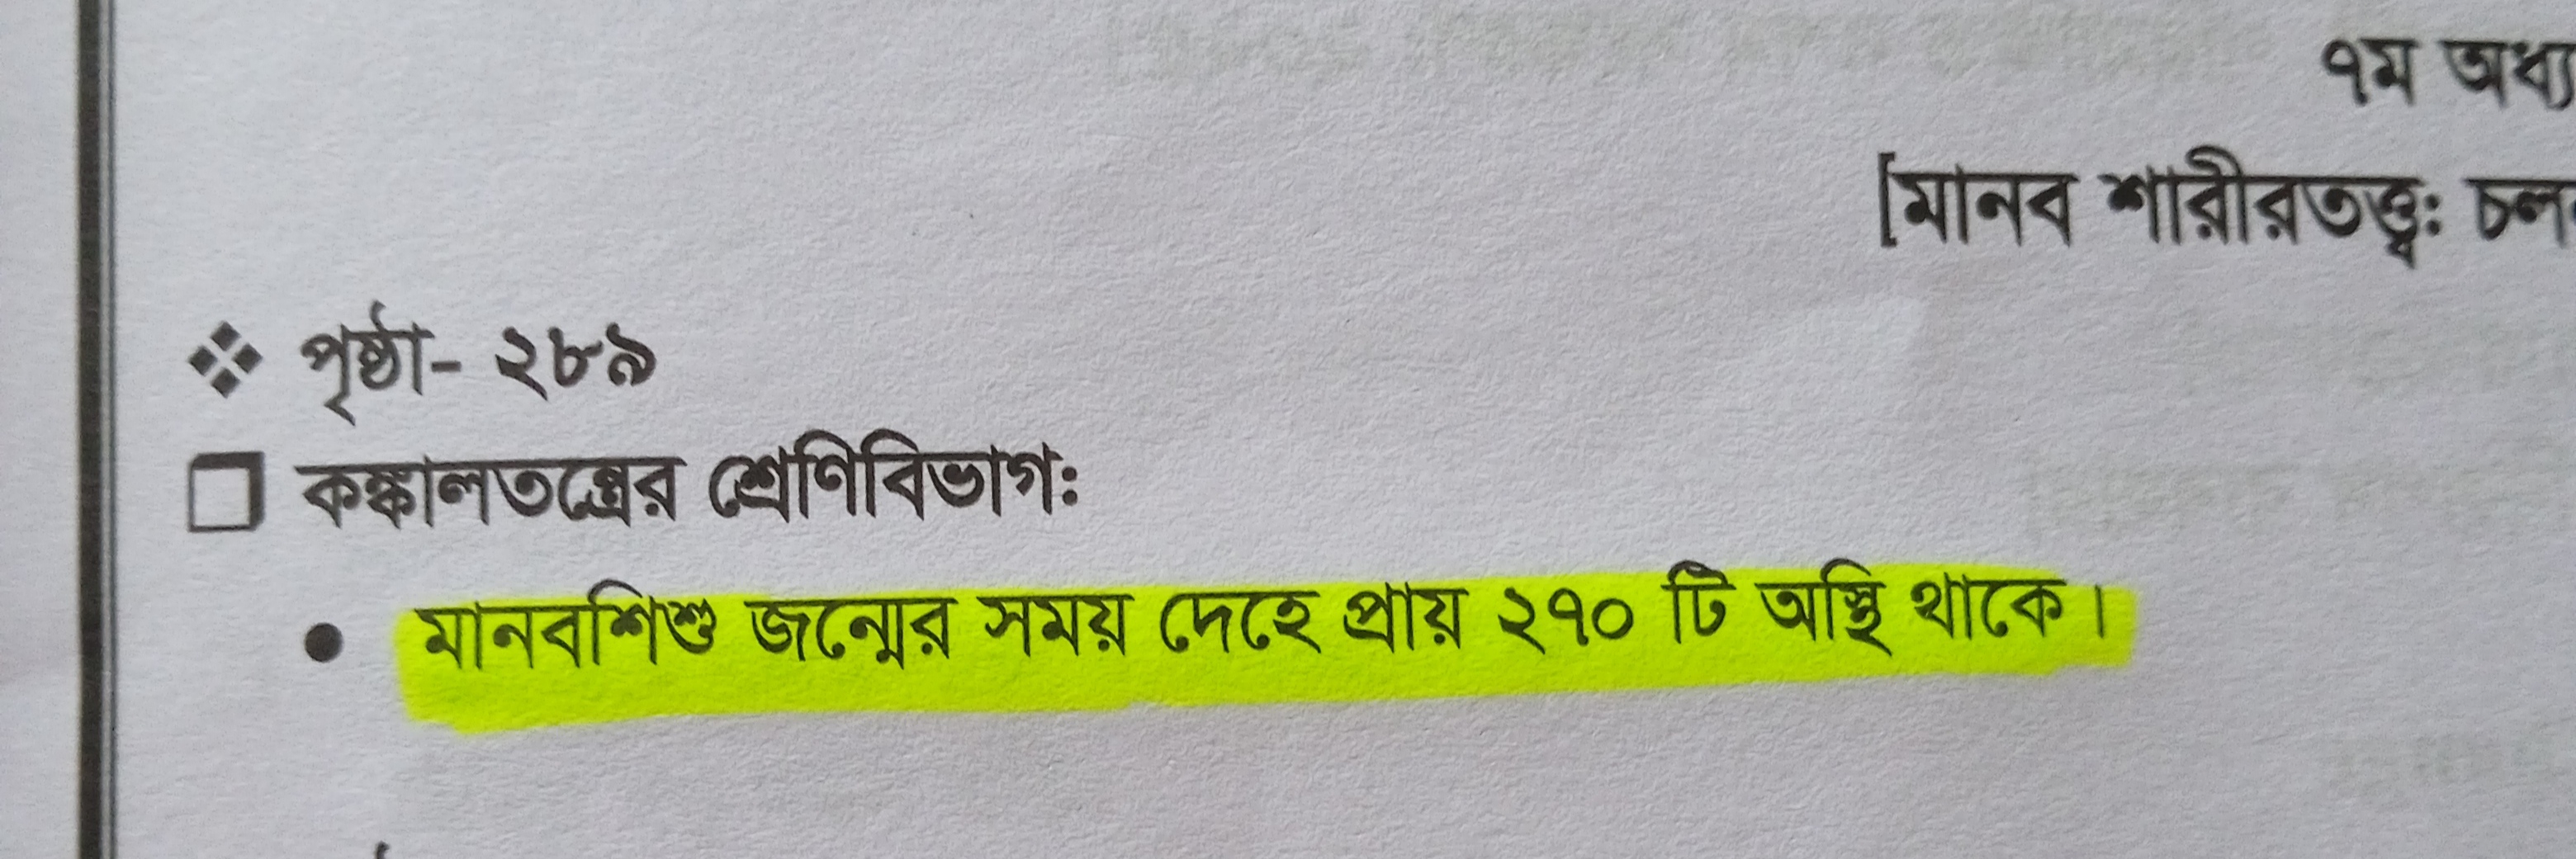 ৭ম
[মানব শারীরতত্ত্ব:
❖ পৃষ্ঠা- ২৮৯
❑ কঙ্কালতন্ত্রের শ্রেণিবিভাগ:
• মানবশিশু জন্মের সময় দেহে প্রায় ২৭০ টি অস্থি থাকে।